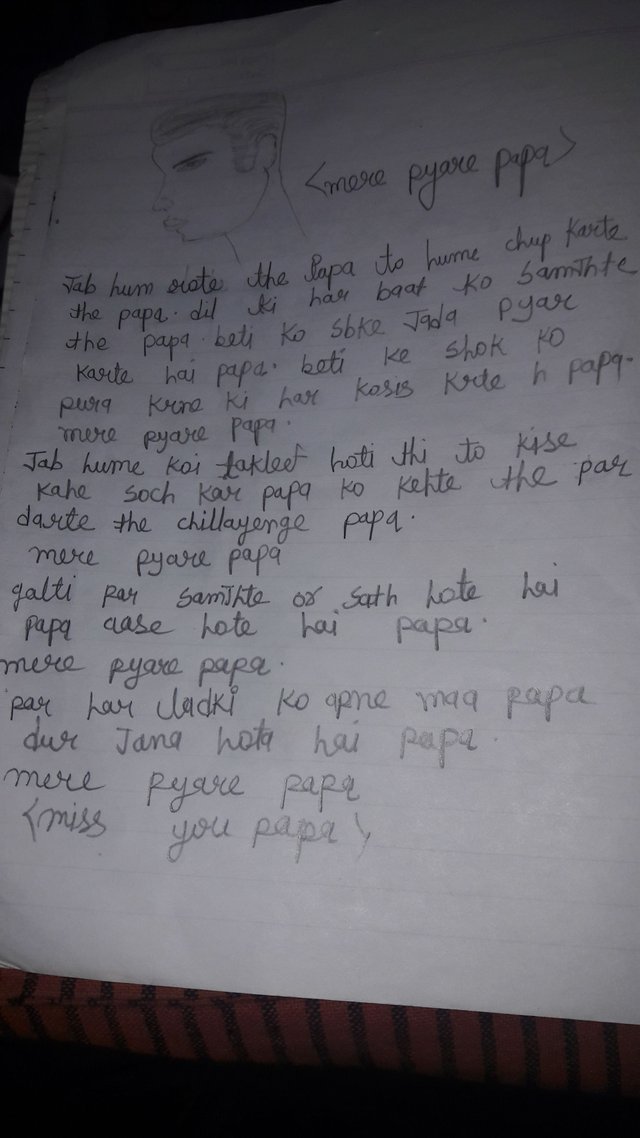 <mere pyare papa>
Jab hum rote the Papa to hume chup karte
the papa. dil ki har baat ko samJhte
the papa. beti ko sbke Jada pyar
karte hai papa. beti ke shok ko
pura krne ki har kosis krte h papa.
mere pyare papa.
Jab hume koi takleef hoti thi to kise
kahe soch kar papa ko kehte the par
darte the chillayenge papa.
mere pyare papa
galti par samJhte or sath hote hai
papa aase hote hai papa.
mere pyare papa.
par har ladki ko apne maa papa
dur Jana hota hai papa.
mere pyare papa
<miss you papa>